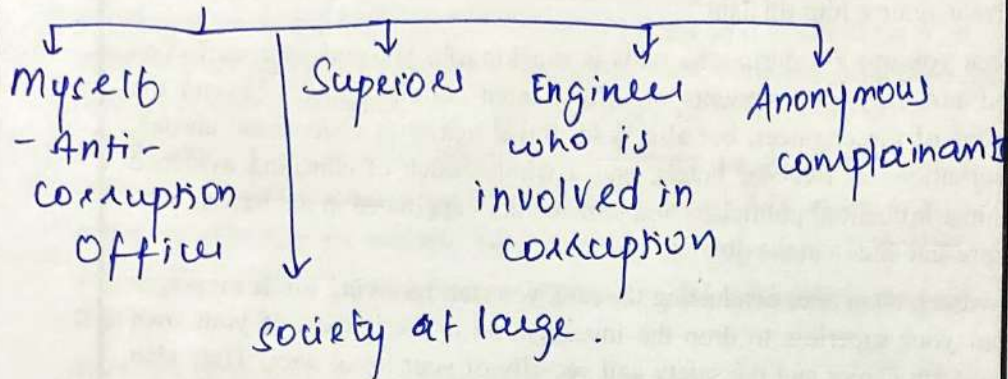 Myself
- Anti-
corruption
Officer
Superiors
Engineer
who is
involved in
corruption
Anonymous
complainant
society at large.